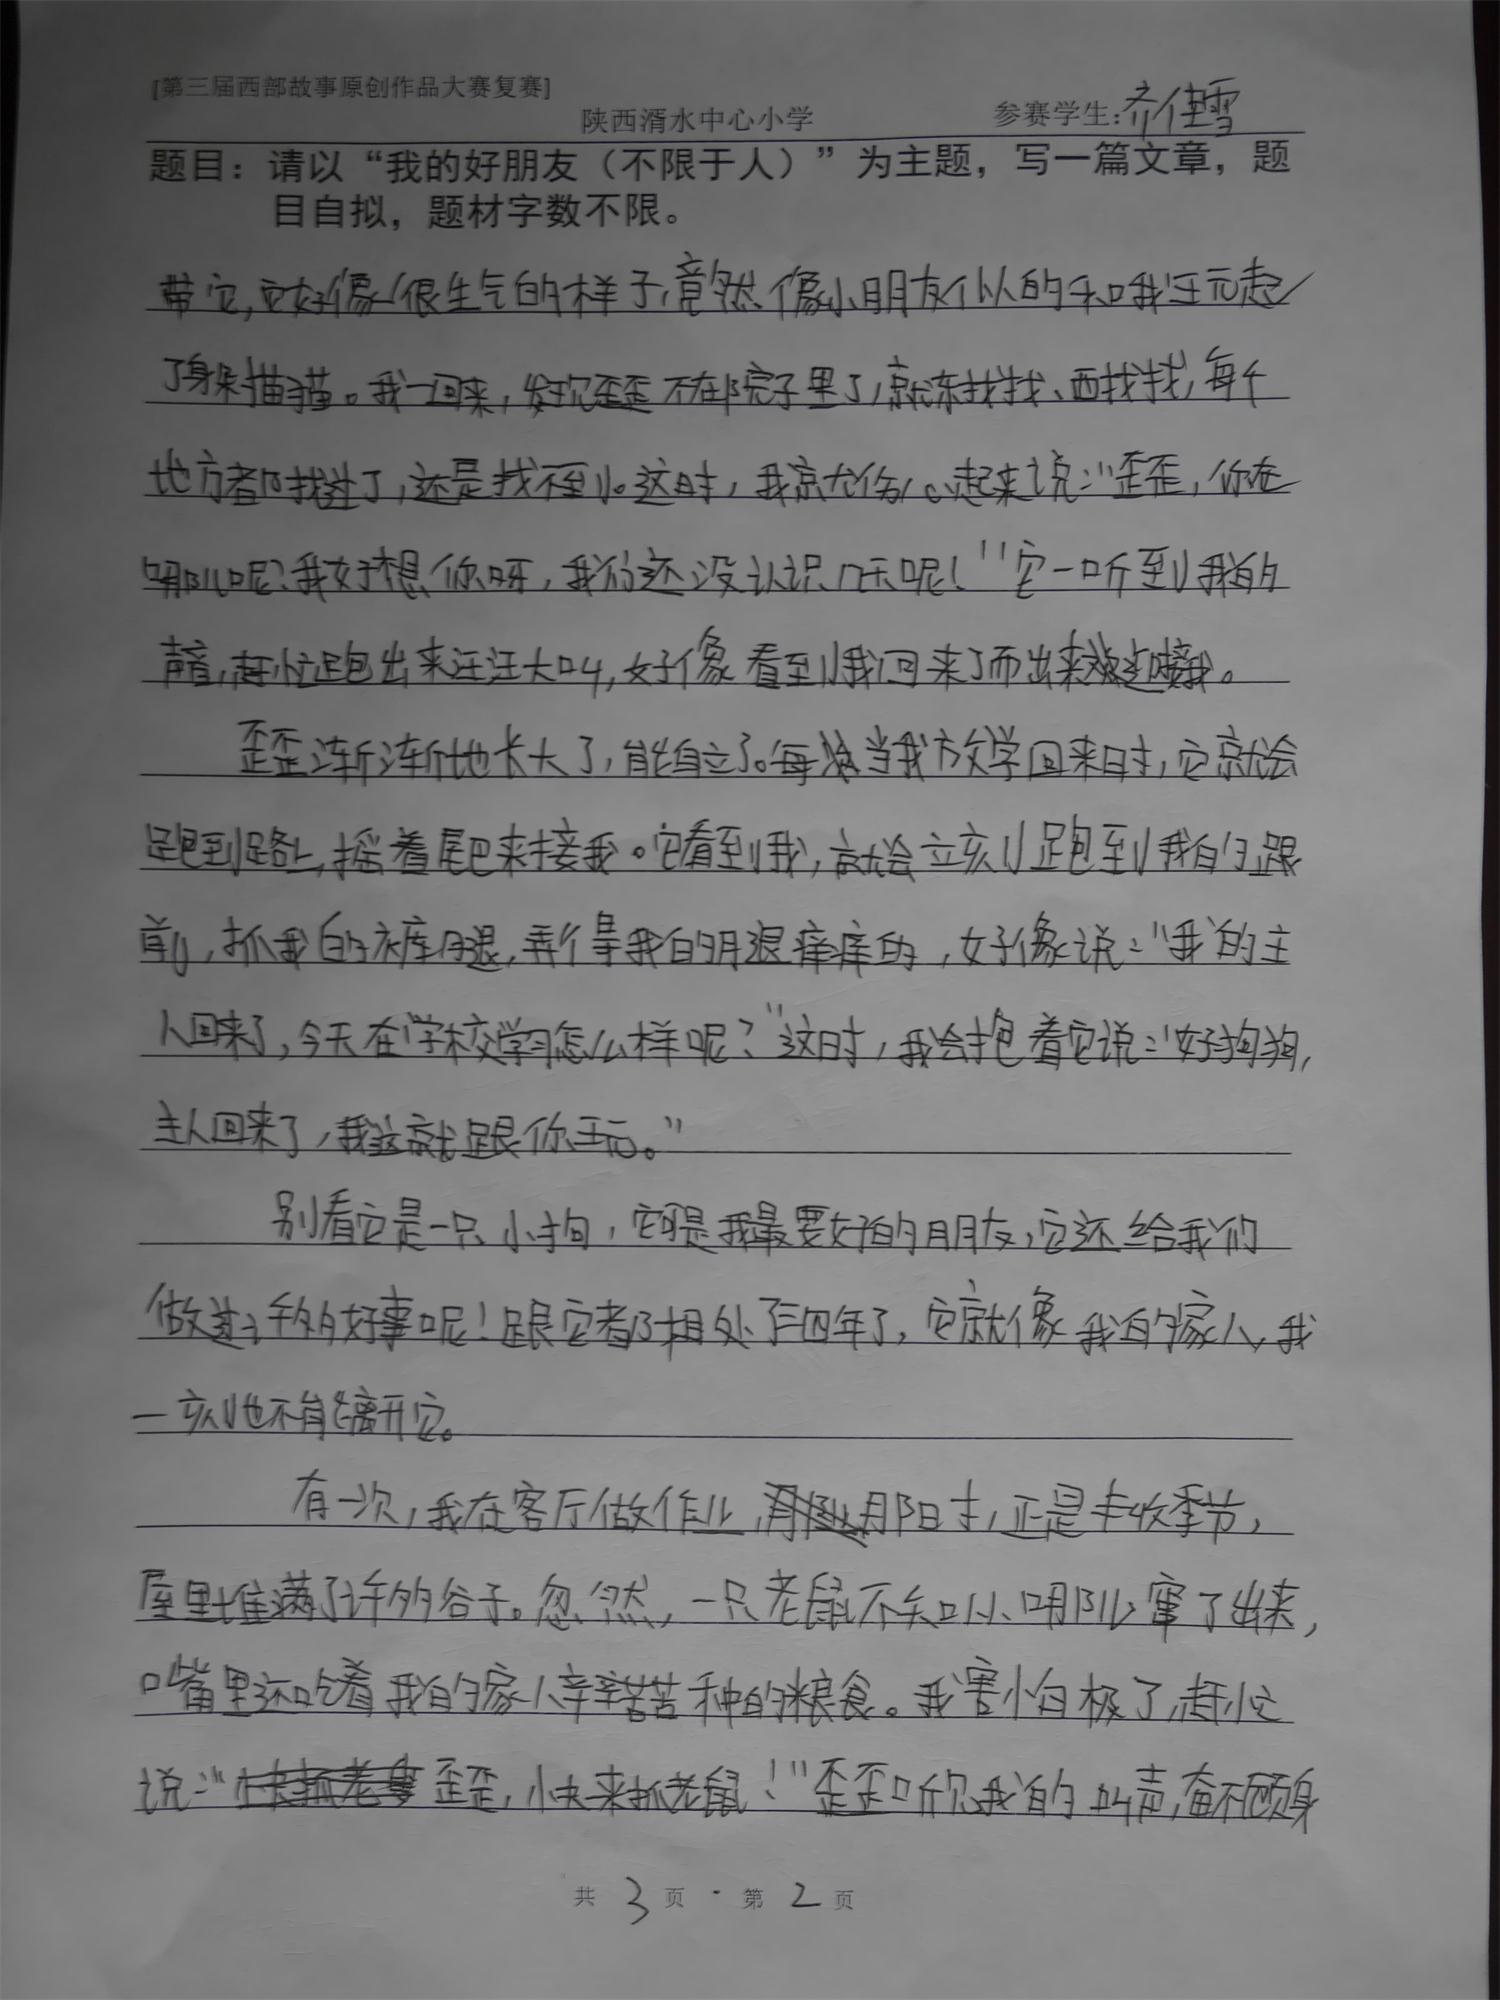 [第三届西部故事原创作品大赛复赛]
陕西湑水中心小学 参赛学生:乔佳雪
题目：请以“我的好朋友（不限于人）”为主题，写一篇文章，题
目自拟，题材字数不限。
带它,它好像很生气的样子,竟然像小朋友似的和我玩起
了躲猫猫。我一回来,发现歪歪不在院子里了,就东找找、西找找,每个
地方都找过了,还是找不到。这时,我就伤心起来说:“歪歪,你在
哪儿呢?我好想你呀,我们还没认识几天呢!”它一听到我的
声音,赶忙跑出来汪汪大叫,好像看到我回来了而出来迎接我。
歪歪渐渐地长大了,能自立了。每当我放学回来时,它就会
跑到路上,摇着尾巴来接我。它看到我,就会立刻跑到我的跟
前,抓我的裤腿,弄得我的腿痒痒的,好像说:“我的主
人回来了,今天在学校学习怎么样呢?”这时,我会抱着它说:“好狗狗,
主人回来了,我这就跟你玩。”
别看它是一只小狗,它可是我最要好的朋友,它还给我们
做过许多好事呢!跟它都相处了三四年了,它就像我的家人,我
一刻也不能离开它。
有一次,我在客厅做作业,那时,正是丰收季节,
屋里堆满了许多谷子。忽然,一只老鼠不知从哪儿窜了出来,
嘴里还吃着我的家人辛辛苦苦种的粮食。我害怕极了,赶忙
说:“歪歪,快来抓老鼠!”歪歪听见我的叫声,奋不顾身
共 3 页·第 2 页